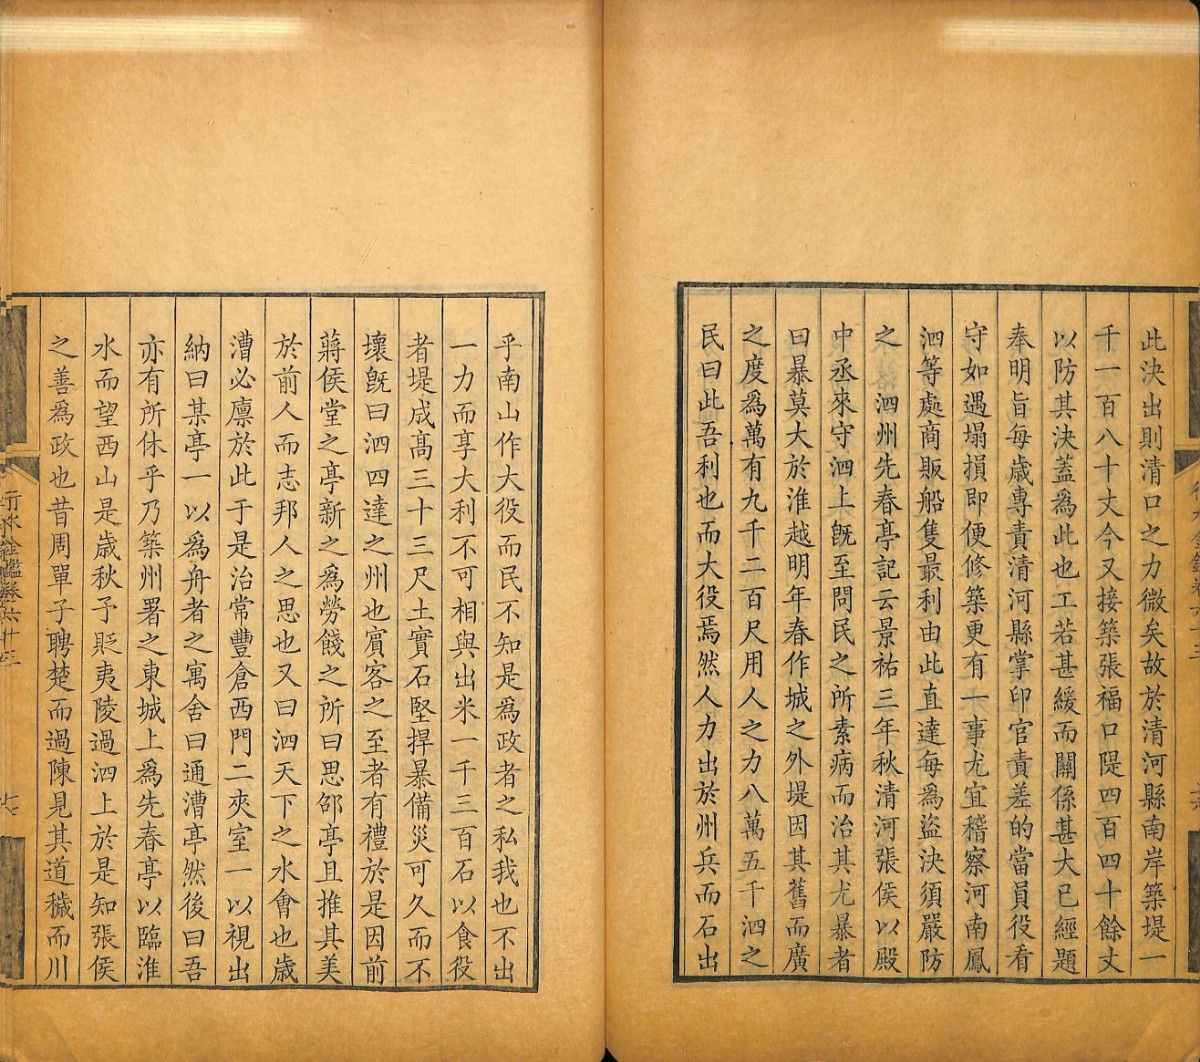 此決出則清口之力微矣故於清河縣南岸築堤一
千一百八十丈今又接築張福口隄四百四十餘丈
以防其決蓋為此也工若甚緩而關係甚大已經題
奉明旨每歲專責清河縣掌印官責差的當員役看
守如遇塌損即便修築更有一事尤宜稽察河南鳳
泗等處商販船隻最利由此直達每為盜決須嚴防
之　泗州先春亭記云景祐三年秋清河張侯以殿
中丞來守泗上旣至問民之所素病而治其尤暴者
曰暴莫大於淮越明年春作城之外堤因其舊而廣
之度為萬有九千二百尺用人之力八萬五千泗之
民曰此吾利也而大役焉然人力出於州兵而石出
乎南山作大役而民不知是為政者之私我也不出
一力而享大利不可相與出米一千三百石以食役
者堤成高三十三尺土實石堅捍暴備災可久而不
壞旣曰泗四達之州也賓客之至者有禮於是因前
蔣侯堂之亭新之為勞餞之所曰思邵亭且推其美
於前人而志邦人之思也又曰泗天下之水會也歲
漕必廩於此于是治常豐倉西門二夾室一以視出
納曰某亭一以為舟者之寓舍曰通漕亭然後曰吾
亦有所休乎乃築州署之東城上為先春亭以臨淮
水而望西山是歲秋予貶夷陵過泗上於是知張侯
之善為政也昔周單子聘楚而過陳見其道穢而川
行水金鑑卷六十三